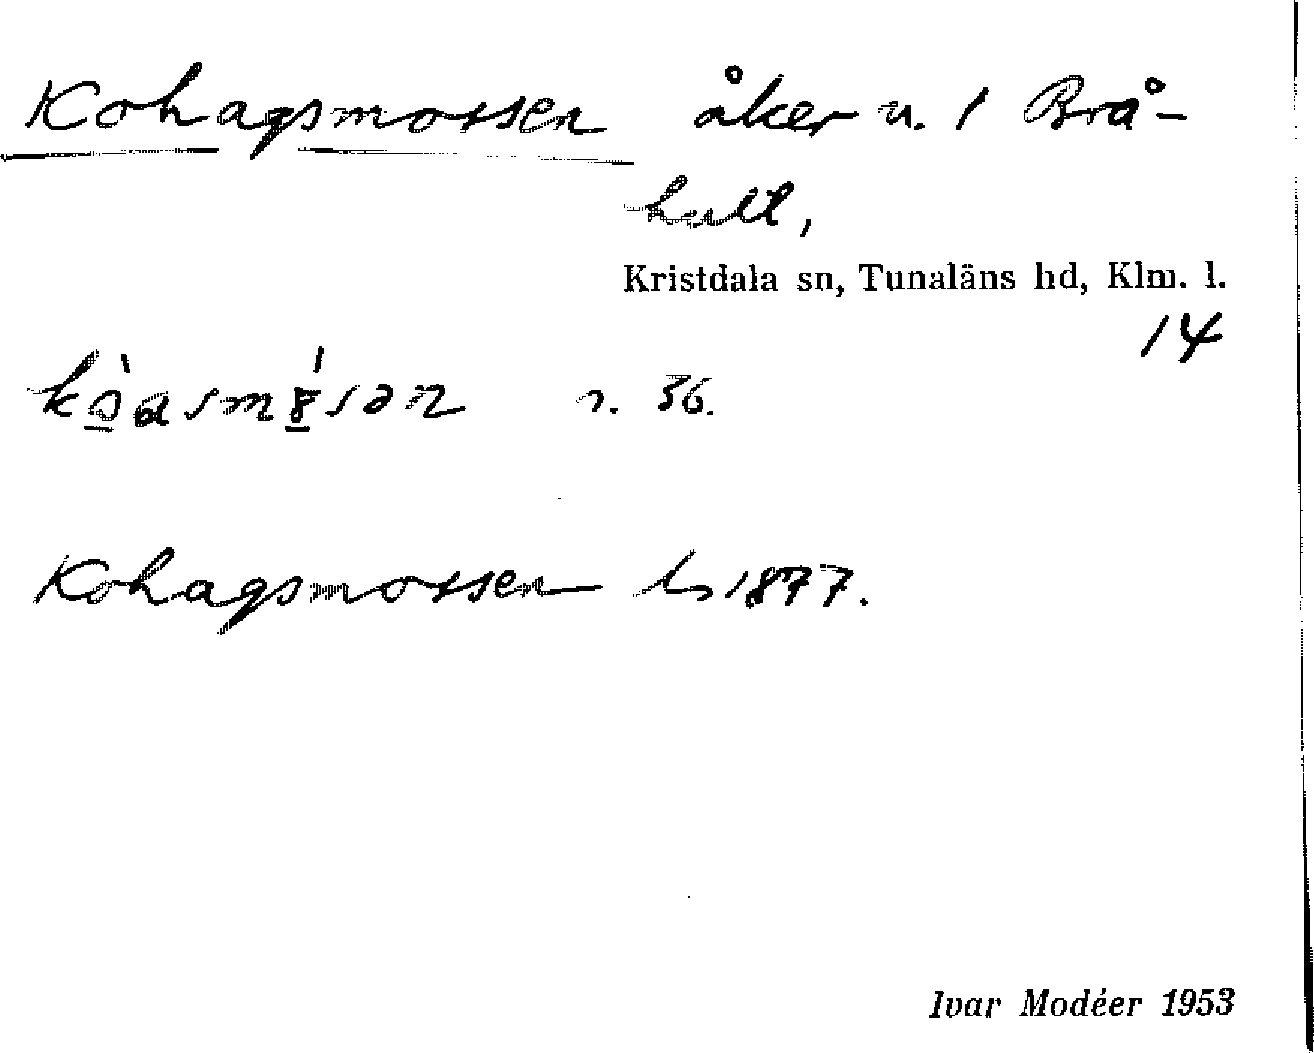 Kohagsmossen åker n. 1 Brå-
hult,
Kristdala sn, Tunaläns hd, Klm. l.
14
36.
Kohagsmossen 1877.
Ivar Modéer 1953